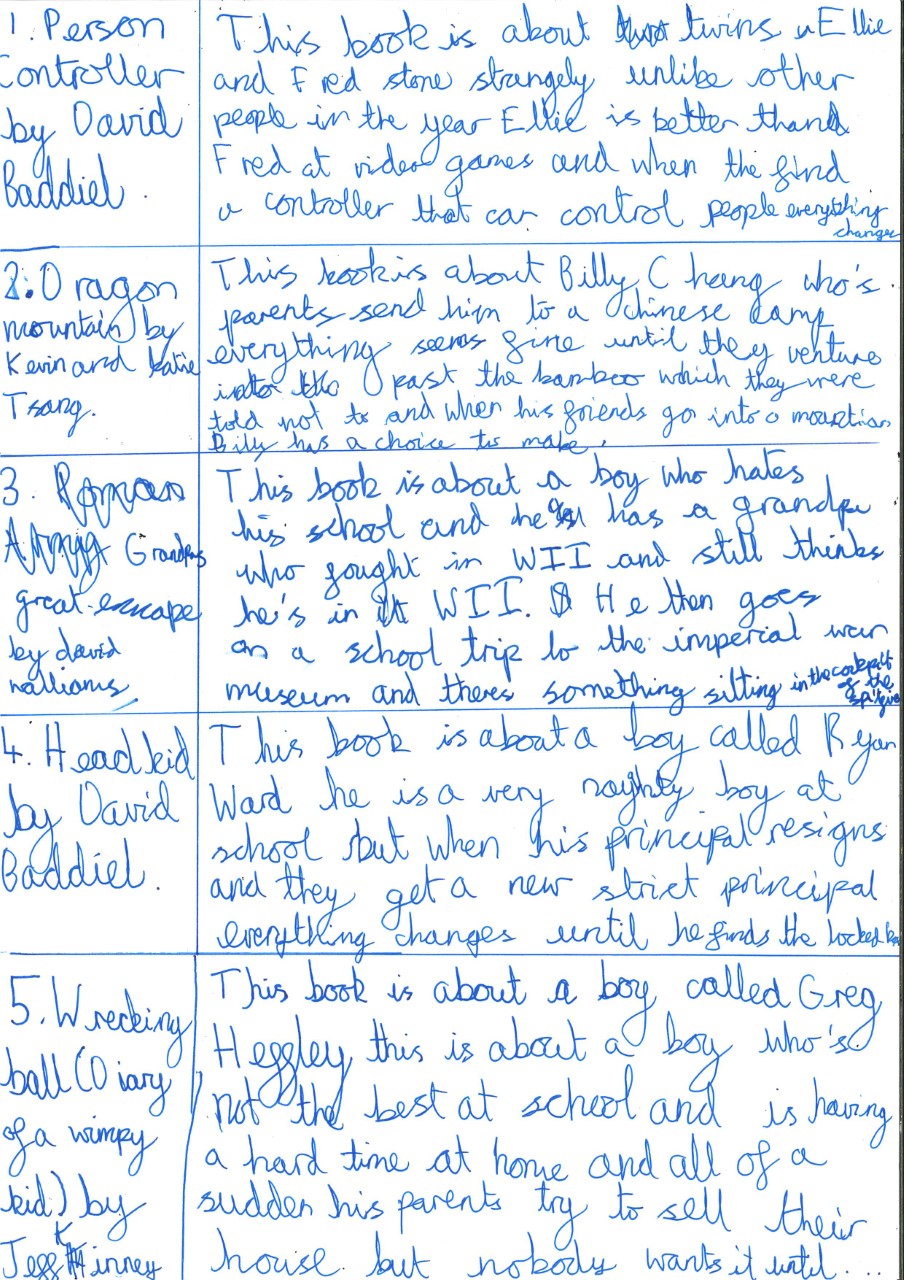 1. Person
Controller
by David
Baddiel.
This book is about twins Ellie
and Fred stone strangely unlike other
people in the year Ellie is better than
Fred at video games and when the find
a controller that can control people everything
changes
2. Dragon
mountain by
Kevin and Katie
Tsang.
This book is about Billy Chang who's
parents send him to a chinese camp
everything seems fine until they venture
past the bamboo which they were
told not to and when his friends go into a mountian
Billy has a choice to make.
3. Roman
Army Grandpas
great escape
by david
walliams
This book is about a boy who hates
his school and he has a grandpa
who fought in WII and still thinks
he's in WII. He then goes
on a school trip to the imperial war
museum and theres something sitting in the cockpit
of the
spitfire
4. Head kid
by David
Baddiel.
This book is about a boy called Ryan
Ward he is a very naughty boy at
school but when his principal resigns
and they get a new strict principal
everything changes until he finds the locked
5. Wrecking
ball (Diary
of a wimpy
kid) by
Jeff Kinney
This book is about a boy called Greg
Heffley this is about a boy who's
not the best at school and is having
a hard time at home and all of a
sudden his parents try to sell their
house but nobody wants it until...